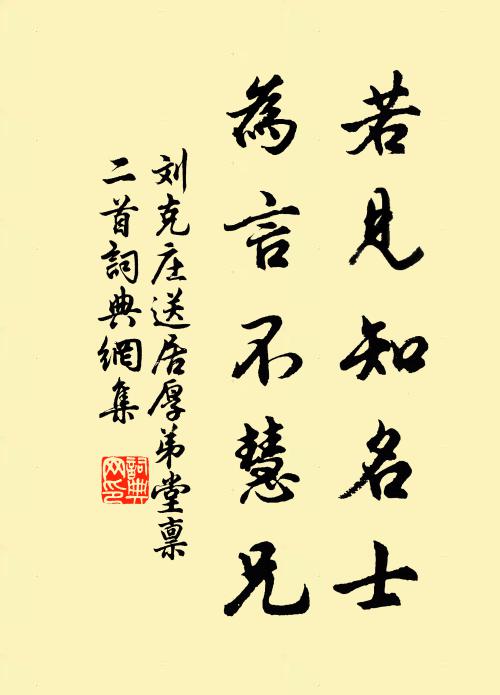 若見知名士
為言不慧兄
刘克庄送居厚弟堂禀
二首詞典網集
詞典
网印